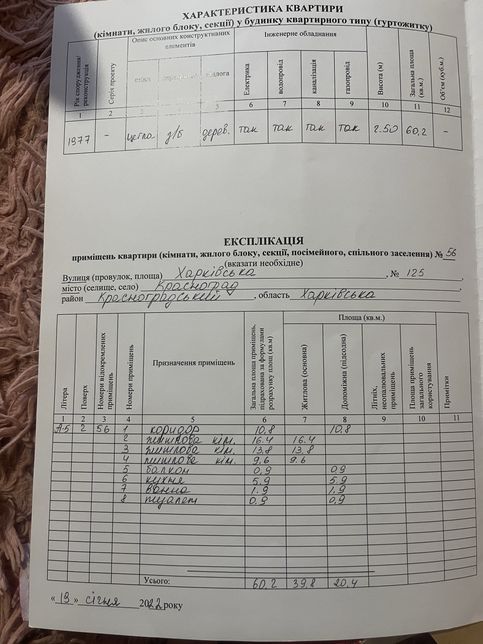 ХАРАКТЕРИСТИКА КВАРТИРИ
(кімнати, жилого блоку, секції) у будинку квартирного типу (гуртожитку)
Рік спорудження/реконструкція Серія проекту Опис основних конструктивних елементів Інженерне обладнання Висота (м) Загальна площа (кв.м.) Об'єм (куб.м.)
Електрика водопровід каналізація газопровід
1 2 5 6 7 8 9 10 11 12
1977 - цегла з/б дерев. так так так так 2.50 60,2 -
ЕКСПЛІКАЦІЯ
приміщень квартири (кімнати, жилого блоку, секції, посімейного, спільного заселення) № 56
(вказати необхідне)
Вулиця (провулок, площа) Харківська, № 125
місто (селище, село) Красноград,
район Красноградський, область Харківська
Літера Поверх Номери відокремлених приміщень Номери приміщень Призначення приміщень Загальна площа приміщень, підрахована за формулами розрахунку площ (кв.м) Площа (кв.м.) Примітки
Житлова (основна) Допоміжна (підсобна) Літніх, неопалювальних приміщень Площа приміщень загального користування
1 2 3 4 5 6 7 8 9 10 11
А-5 2 56 1 коридор 10.8 10.8
2 житлова кім. 16.4 16.4
3 житлова кім. 13,8 13.8
4 житлова кім. 9.6 9.6
5 балкон 0,9 0,9
6 кухня 5.9 5.9
7 ванна 1.9 1.9
8 туалет 0.9 0,9
Усього: 60,2 39,8 20,4
« 13 » січня 2022 року